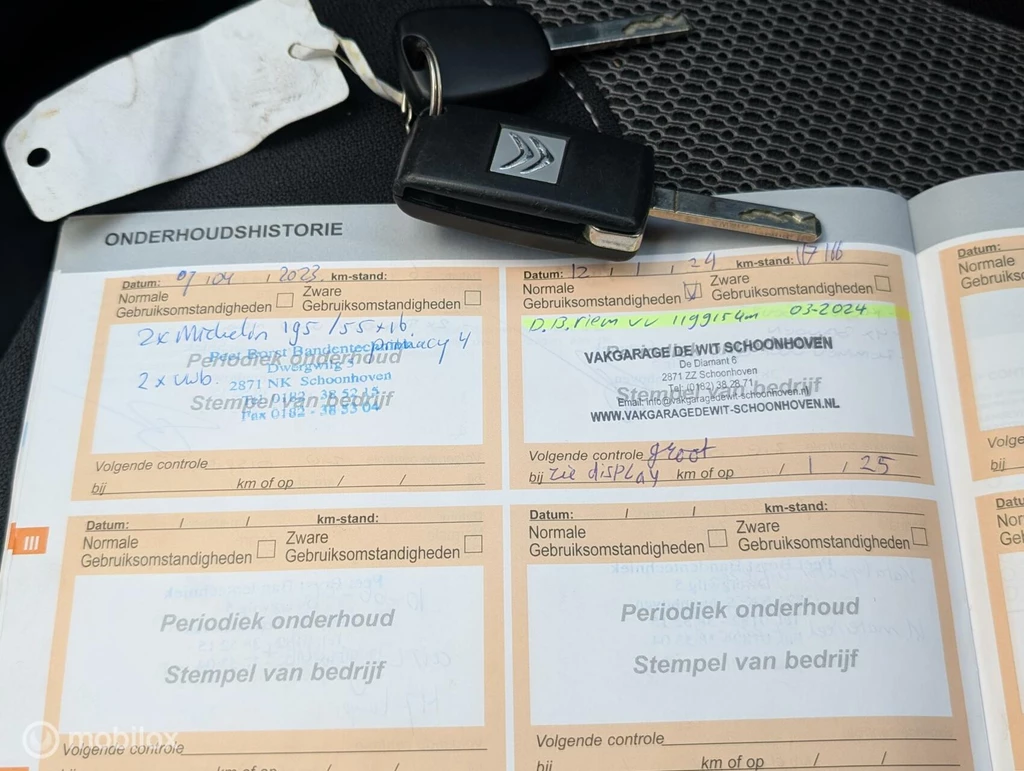 ONDERHOUDSHISTORIE
Datum: 07/04/2023 km-stand:
Normale Gebruiksomstandigheden
Zware Gebruiksomstandigheden
2x Michelin 195/55 x 16.
Primacy 4
2x uwb.
Periodiek onderhoud
Stempel van bedrijf
Peet Borst Bandentechniek
Dwergwilg 3
2871 NK Schoonhoven
Tel 0182 - 38 52 15
Fax 0182 - 38 53 04
Volgende controle
bij km of op / /
Datum: 12/1/24 km-stand:
Normale Gebruiksomstandigheden
Zware Gebruiksomstandigheden
D.B.riem vv 119915 km 03-2024
Periodiek onderhoud
VAKGARAGE DE WIT SCHOONHOVEN
De Diamant 6
2871 ZZ Schoonhoven
Tel: (0182) 38 28 71
Email: info@vakgaragedewit-schoonhoven.nl
Stempel van bedrijf
WWW.VAKGARAGEDEWIT-SCHOONHOVEN.NL
Volgende controle groot
bij zie display km of op / 1 / 25
Datum:
Normale
Volge
bij
III
Datum: / / km-stand:
Normale Gebruiksomstandigheden
Zware Gebruiksomstandigheden
Periodiek onderhoud
Stempel van bedrijf
Volgende controle
km of op / /
Datum: / / km-stand:
Normale Gebruiksomstandigheden
Zware Gebruiksomstandigheden
Periodiek onderhoud
Stempel van bedrijf
Volgende controle
bij km of op / /
mobilox